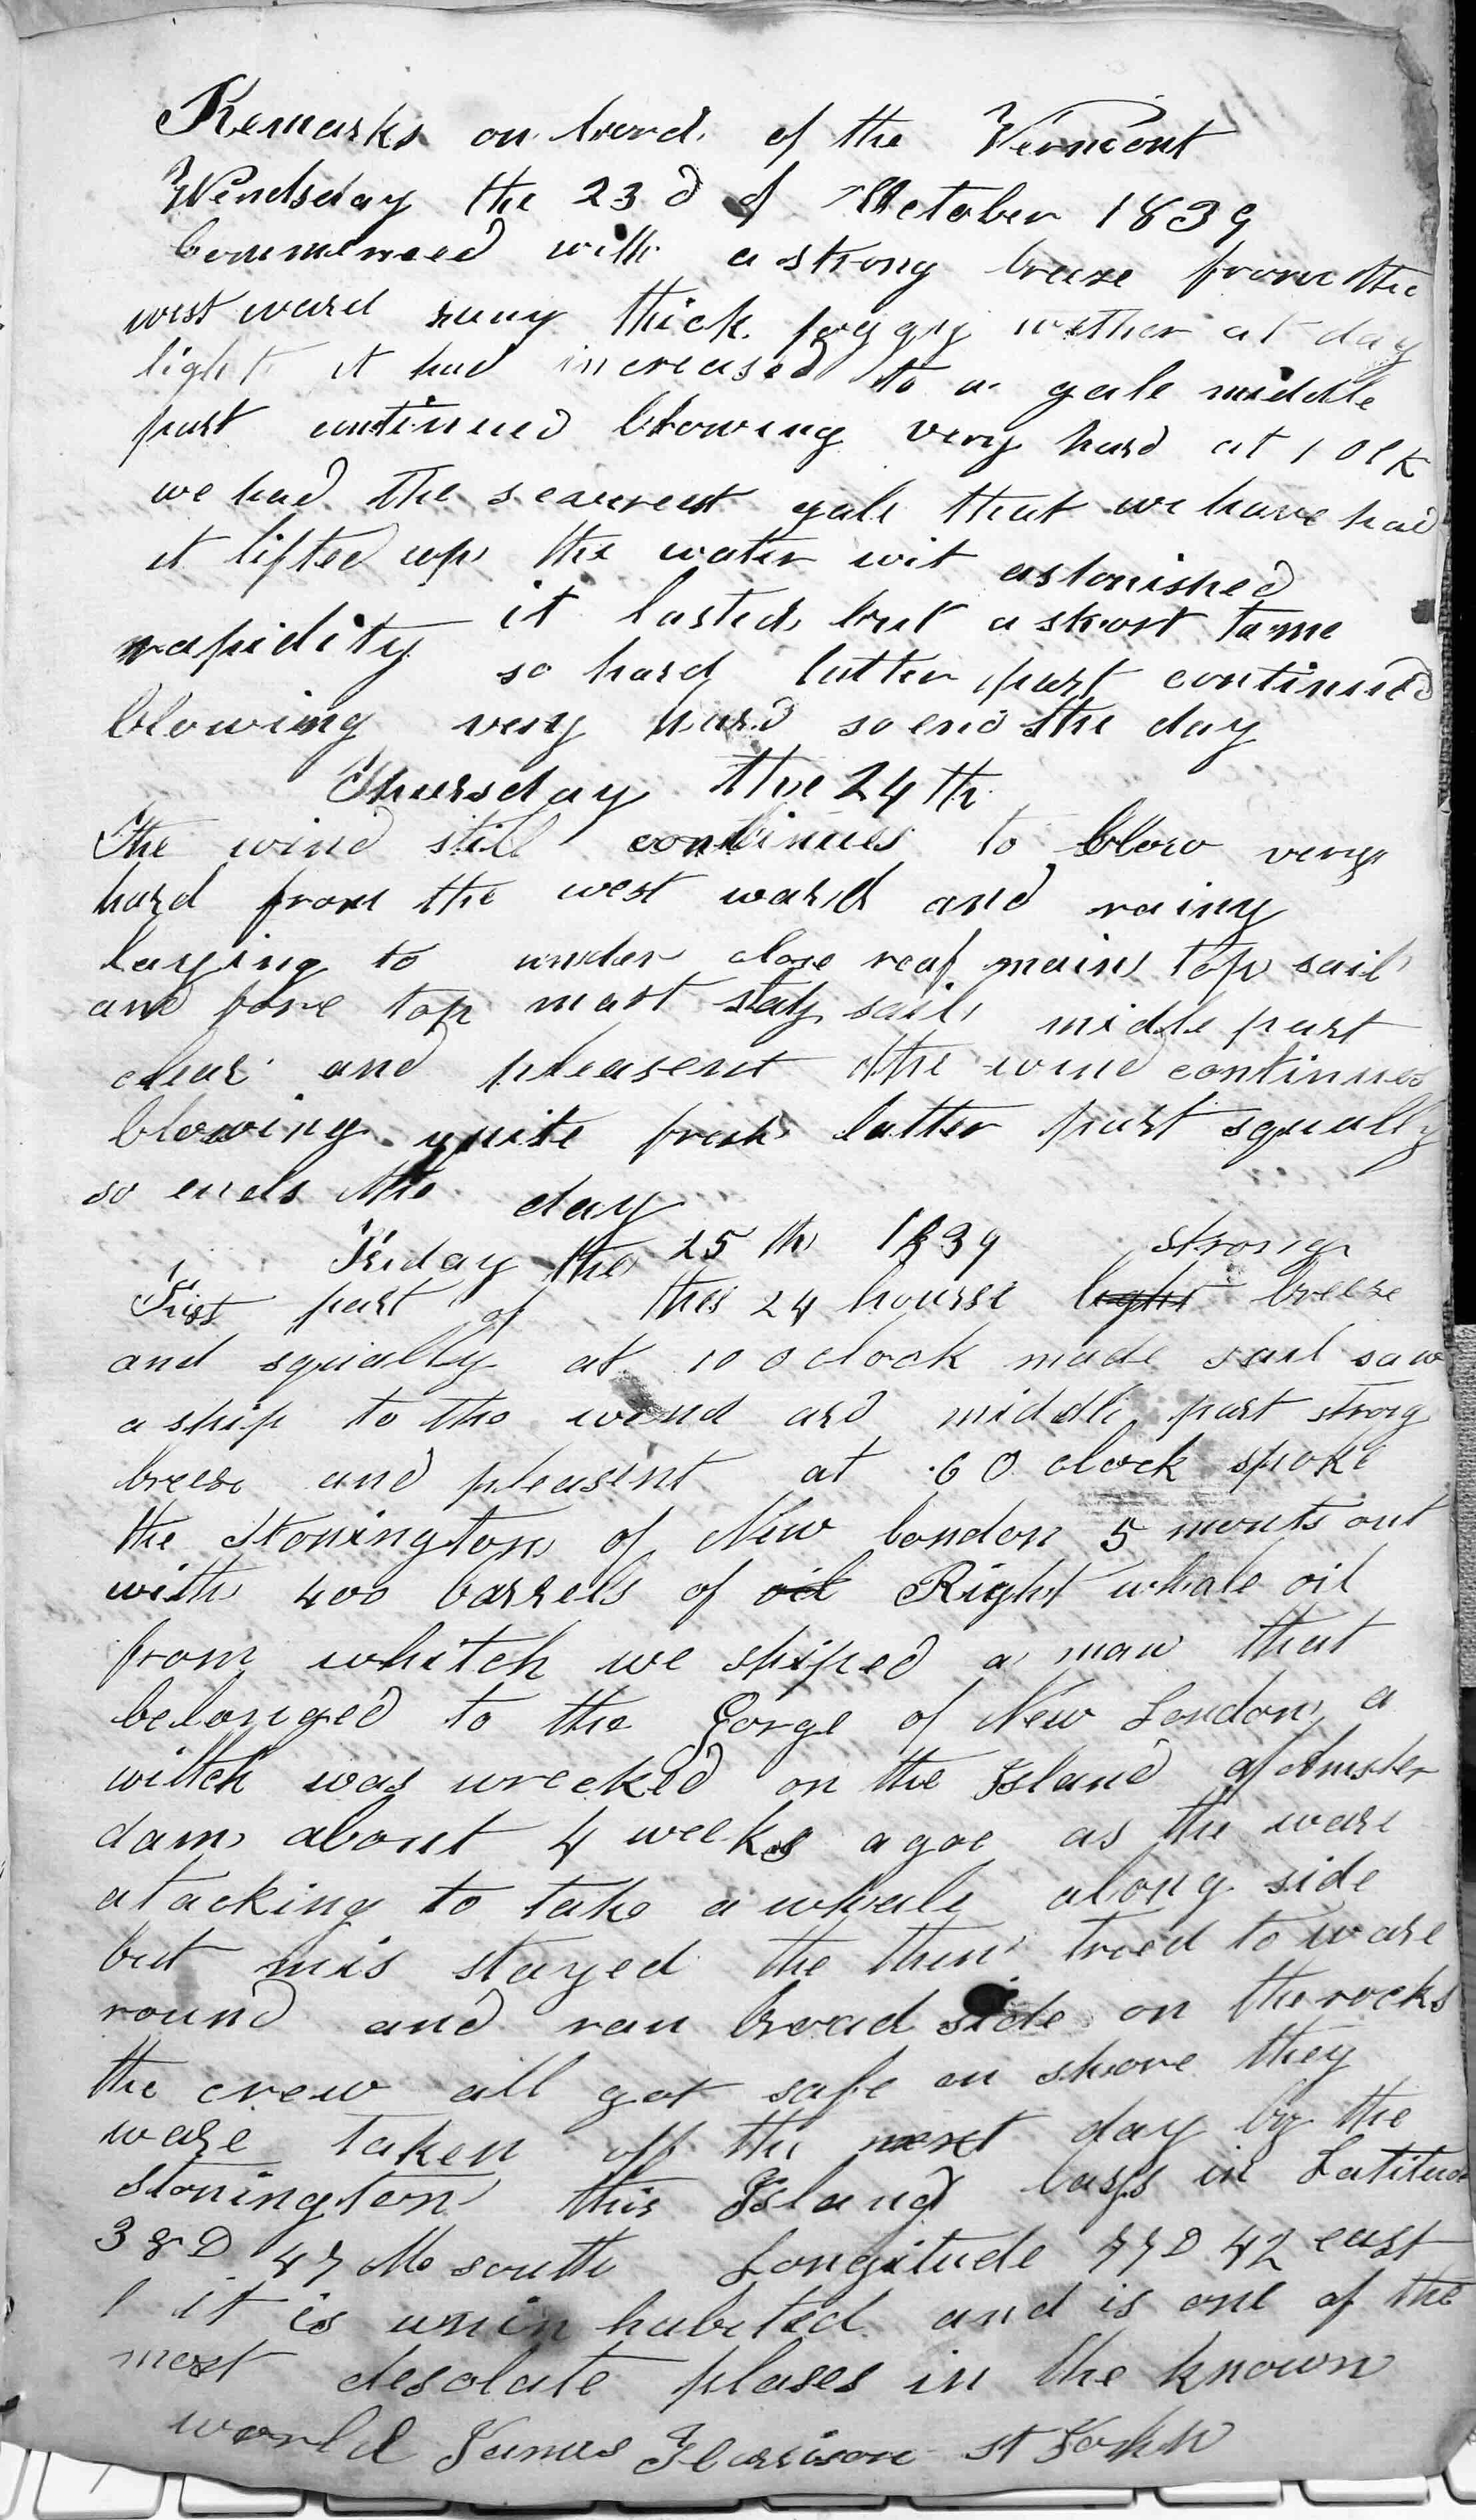 Remarks on bord of the Vermont
Wendsday the 23d of October 1839
Commenced with a strong breeze from the
west ward rany thick foggy wether at day
light it had increased to a gale middle
part continued blowing very hard at 1 Olk
we had the severest gale that we have had
it lifted up the water wit astonished
rapidity it lasted but a short time
so hard latter part continued
blowing very hard so end the day
Thursday the 24th
The wind still continues to blow very
hard from the west ward and rainy
laying to under close reaf main top sail
and fore top mast stay sail middle part
clear and pleasent the wind continues
blowing quite fresh latter part squally
so ends the day
Friday the 25th 1839
First part of this 24 hourse light strong breeze
and squally at 10 O clock made sail saw
a ship to the wind ard middle part strong
breese and pleasent at 6 O clock spoke
the Stonington of New London 5 monts out
with 400 barrels of oil Right whale oil
from whitch we shiped a man that
belonged to the Gorge of New London a
witch was wrecked on the Island of Amster
dam about 4 weeks agoe as the ware
atacking to take a whale along side
but mis stayed the then tried to ware
round and ran broad side on the rocks
the crew all got safe on shore they
ware taken off the next day by the
Stonington this Island lays in Latitude
38D 47 Mo south Longitude 77D 42 east
it is unin habited and is one of the
most desolate plases in the known
world James Harrison St John